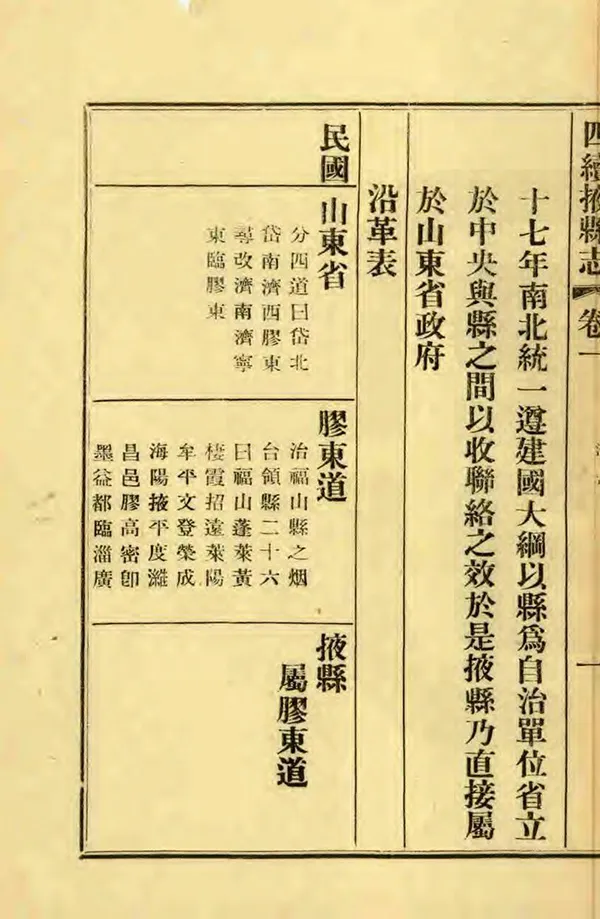 四續掖縣志 卷一
十七年南北統一遵建國大綱以縣爲自治單位省立
於中央與縣之間以收聯絡之效於是掖縣乃直接屬
於山東省政府
沿革表
民國
山東省
分四道曰岱北
岱南濟西膠東
尋改濟南濟寧
東臨膠東
膠東道
治福山縣之烟
台領縣二十六
曰福山蓬萊黃
棲霞招遠萊陽
牟平文登榮成
海陽掖平度濰
昌邑膠高密卽
墨益都臨淄廣
掖縣
屬膠東道
一